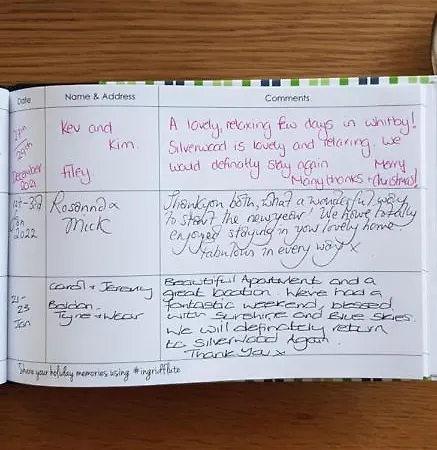 Date Name & Address Comments
27th
29th
December
2021
Kev and
Kim.
Filey
A lovely, relaxing few days in whitby!
Silverwood is lovely and relaxing. We
would definatly stay again Merry
Many thanks + Christmas!
1st - 3rd
Jan
2022
Rosanna &
Mick
Thankyou both, what a wonderful way
to start the new year! We have totally
enjoyed staying in your lovely home.
Fabulous in every way x
21-
23
Jan
Carol + Jeremy
Boldon.
Tyne + Wear
Beautiful Apartment and a
great location. We've had a
fantastic weekend, blessed
with sunshine and Blue skies.
We will definately return
to Silverwood Again.
Thank You x
Share your holiday memories using #ingridflute